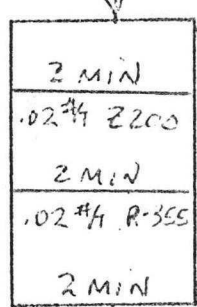 2 MIN
.02 #/t Z200
2 MIN
.02 #/t R-355
2 MIN